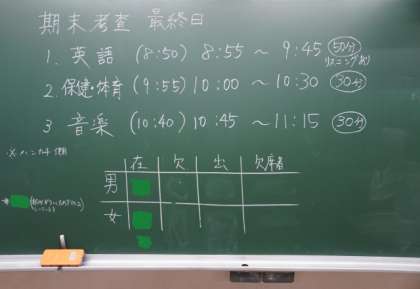 期末考査 最終日
1. 英語 (8:50) 8:55 〜 9:45 50分
リスニングあり
2. 保健・体育 (9:55) 10:00 〜 10:30 30分
3 音楽 (10:40) 10:45 〜 11:15 30分
在 欠 出 欠席者
男
女